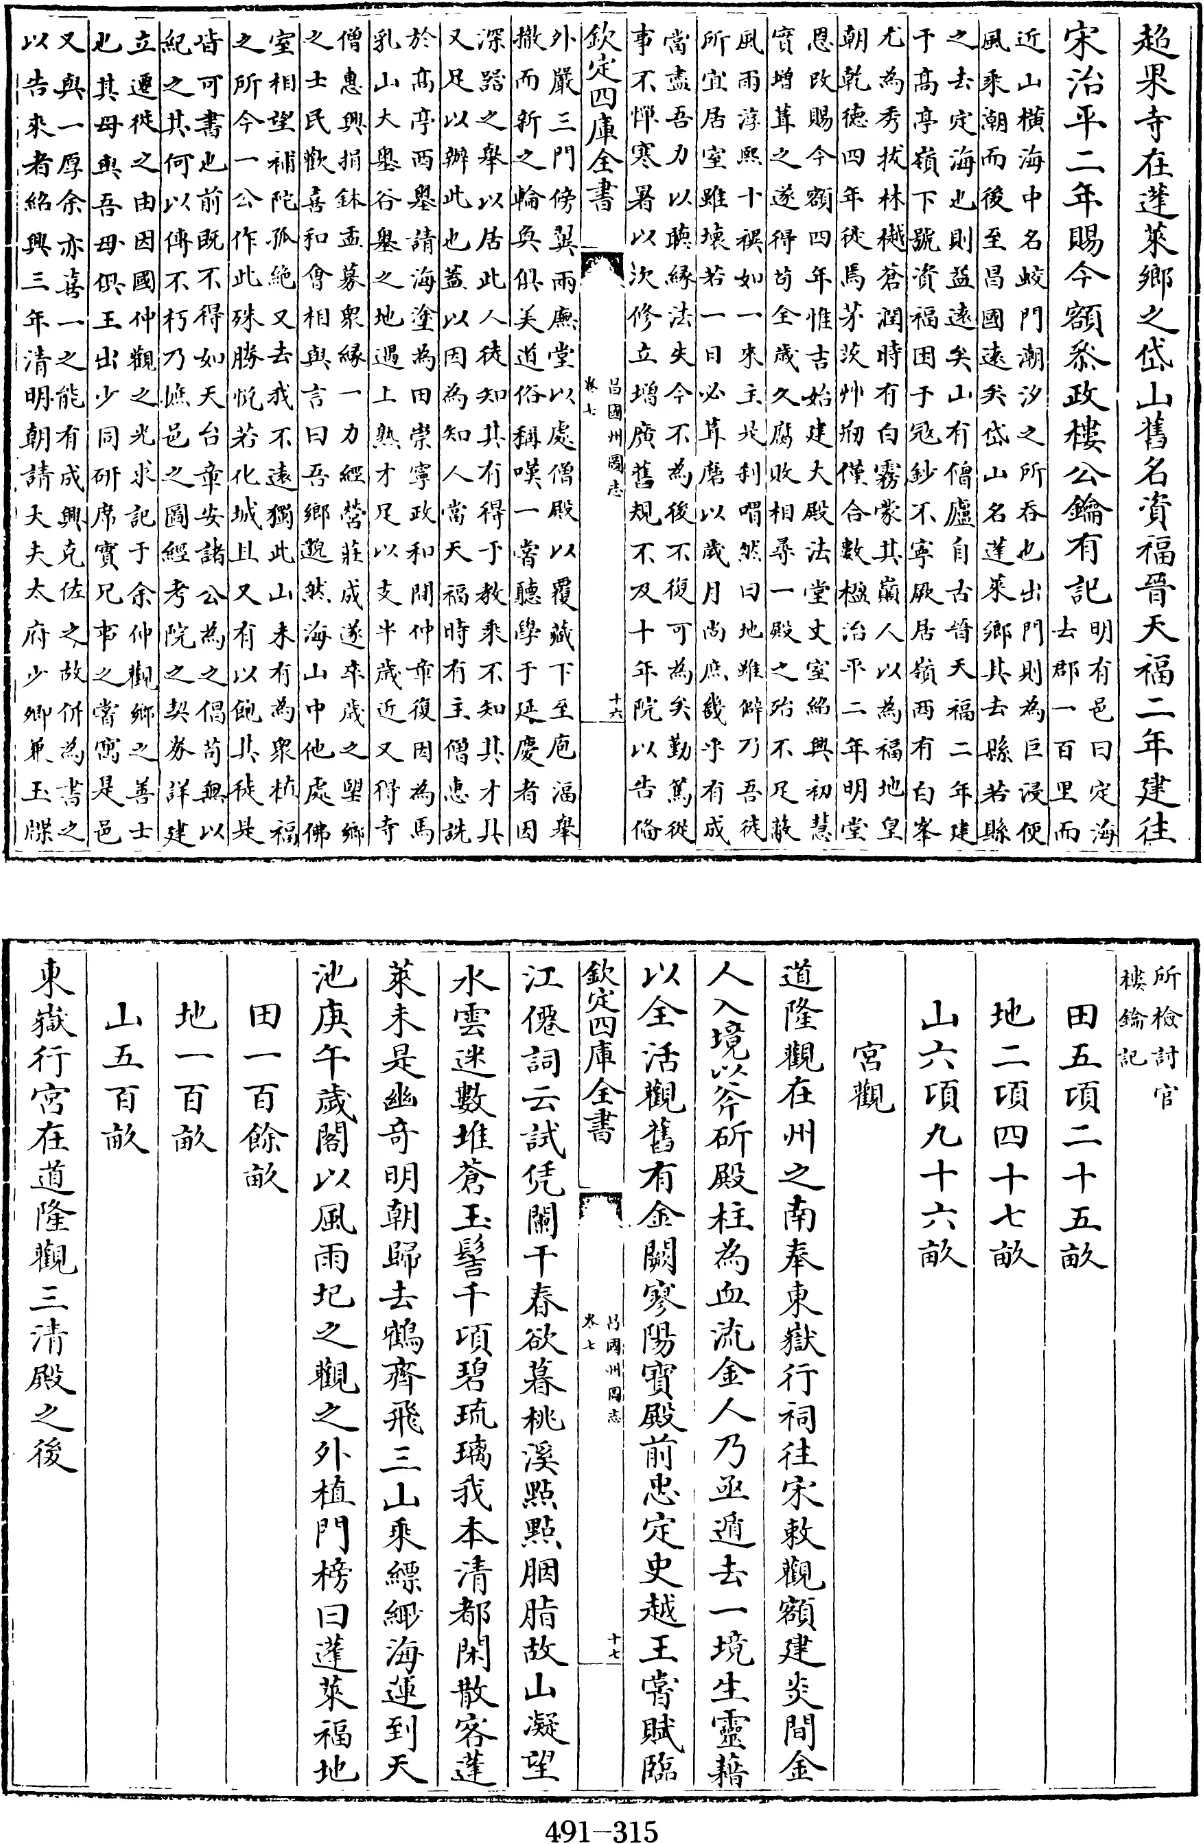 超果寺在蓬萊鄉之岱山舊名資福晉天福二年建往
宋治平二年賜今額叅政樓公鑰有記
明有邑曰定海
去郡一百里而
近山橫海中名蛟門潮汐之所吞也出門則為巨浸便
風乘潮而後至昌國遠矣岱山名蓬萊鄉其去縣若縣
之去定海也則益遠矣山有僧廬自古晉天福二年建
于高亭嶺下號資福困于冦鈔不寧厥居嶺兩有白峯
尤為秀拔林樾蒼潤時有白霧蒙其巔人以為福地皇
朝乾德四年徙焉茅茨艸剏僅合數楹治平二年明堂
恩改賜今額四年惟吉始建大殿法堂丈室紹興初慧
寳增葺之遂得苟全歲久腐敗相尋一殿之殆不足蔽
風雨淳熙十禩如一來主是刹喟然曰地雖僻乃吾徒
所宜居室雖壞若一日必葺磨以歲月尚庶幾乎有成
當盡吾力以聽緣法失今不為後不復可為矣勤篤從
事不憚寒暑以次修立增廣舊規不及十年院以告俻
欽定四庫全書
昌國州圖志
卷七
十六
外嚴三門傍翼兩廡堂以處僧殿以覆藏下至庖湢舉
撤而新之輪奐俱美道俗稱嘆一嘗聽學于延慶者因
深諮之舉以居此人徒知其有得于教乘不知其才具
又足以辦此也蓋以因為知人當天福時有主僧惠詵
於高亭西墾請海塗為田崇寧政和間仲章復因為馬
乳山大墾谷墾之地遇上熟才足以支半歲近又得寺
僧惠興捐鉢盂募衆緣一力經營莊成遂卒歲之望鄉
之士民歡喜和會相與言曰吾鄉邈然海山中他處佛
室相望補陀孤絶又去我不遠獨此山未有為衆植福
之所今一公作此殊勝恍若化城且又有以飽其徒是
皆可書也前既不得如天台章安諸公為之倡苟無以
紀之其何以傳不朽乃撫邑之圖經考院之契劵詳建
立遷徙之由因國仲觀之光求記于余仲觀鄉之善士
也其母與吾母俱王出少同研席實兄事之嘗寓是邑
又與一厚余亦喜一之能有成興克佐之故併為書之
以告來者紹興三年清明朝請大夫太府少卿兼玉牒
所檢討官
樓鑰記
田五項二十五畝
地二項四十七畝
山六項九十六畝
宮觀
道隆觀在州之南奉東嶽行祠往宋敕觀額建炎間金
人入境以斧斫殿柱為血流金人乃亟遁去一境生靈藉
以全活觀舊有金闕寥陽寶殿前忠定史越王嘗賦臨
欽定四庫全書
昌國州圖志
卷七
十七
江僊詞云試凭闌干春欲暮桃溪點點胭脂故山凝望
水雲迷數堆蒼玉髻千頃碧琉璃我本清都閑散客蓬
萊未是幽奇明朝歸去鶴齊飛三山乘縹緲海運到天
池庚午歲閣以風雨圮之觀之外植門榜曰蓬萊福地
田一百餘畝
地一百畝
山五百畝
東嶽行宮在道隆觀三清殿之後
491-315